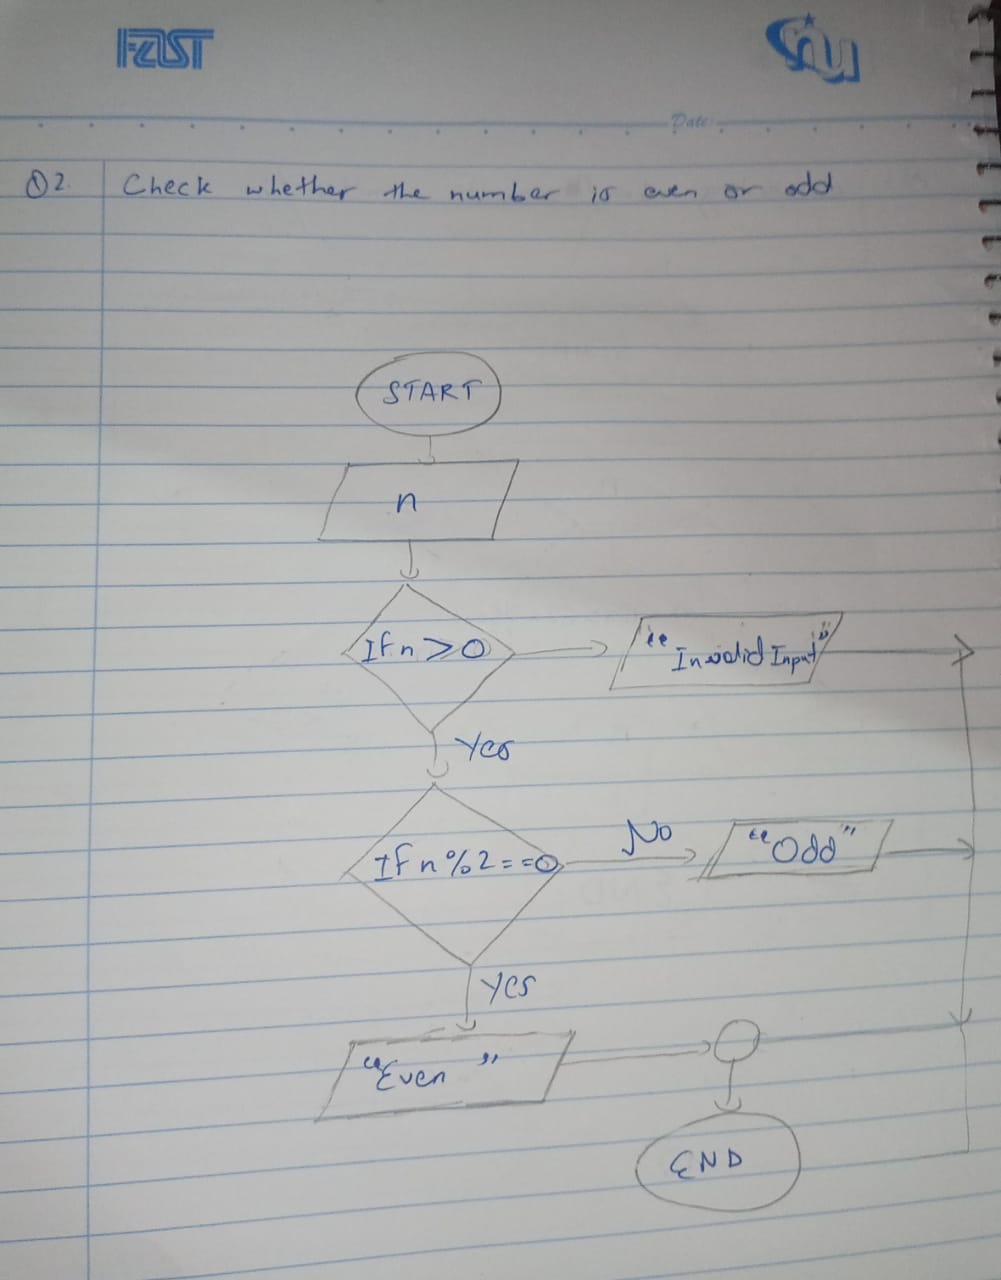 FAST
nu
Date:
Q2. Check whether the number is even or odd
START
n
If n > 0
"Invalid Input"
Yes
If n % 2 = = 0
No
"Odd"
Yes
"Even"
END